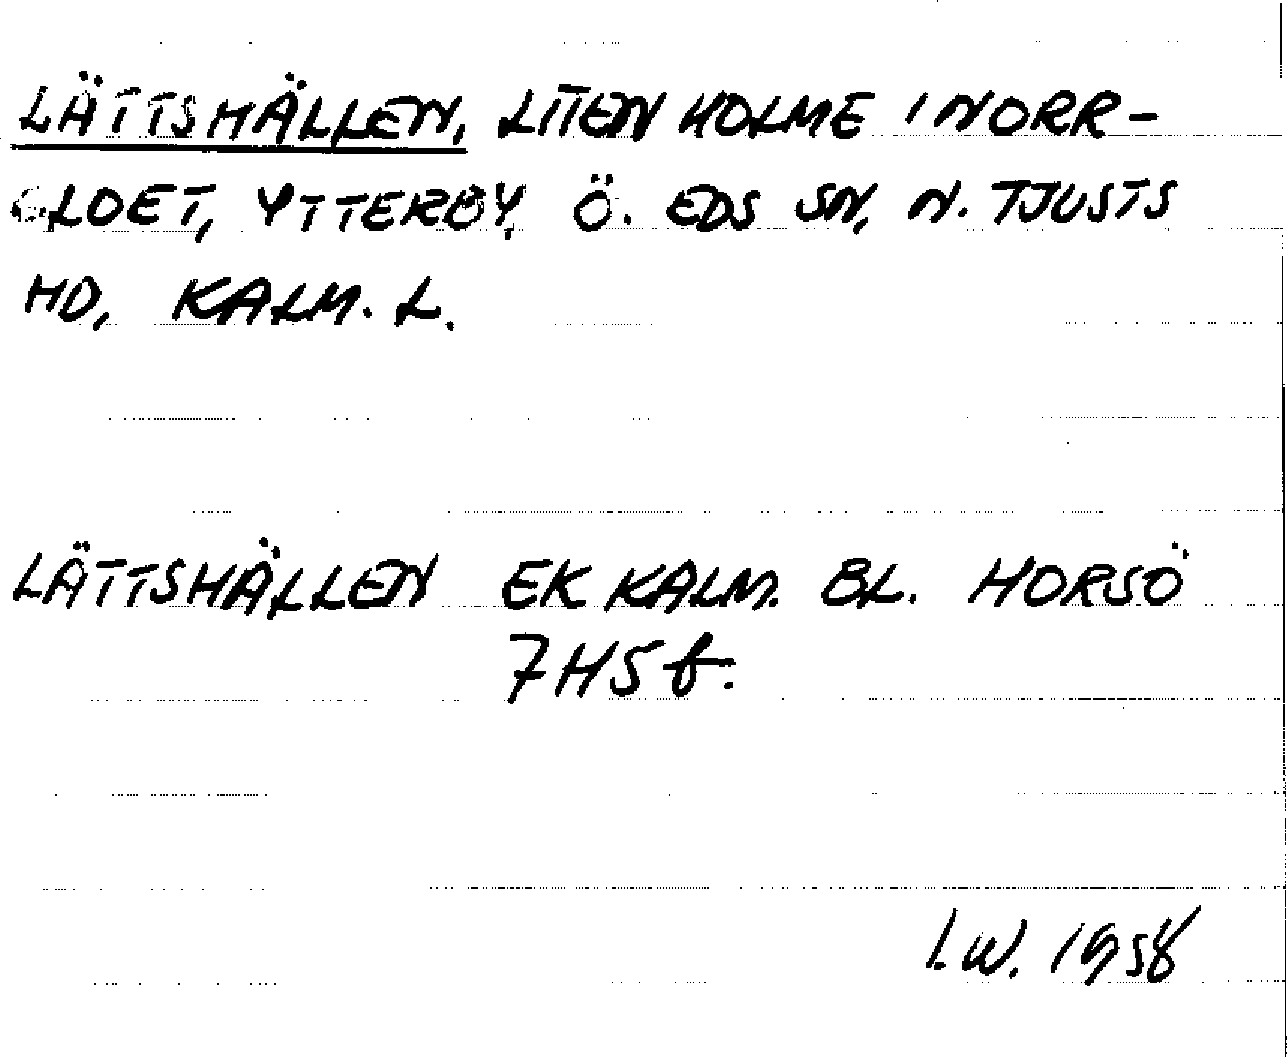 LÄTTSHÄLLEN, LITEN HOLME I NORR-
GLOET, YTTERBY, Ö. EDS SN, N. TJUSTS
HD, KALM. L.
LÄTTSHÄLLEN EK KALM. BL. HORSÖ
7H5f.
I.W. 1958